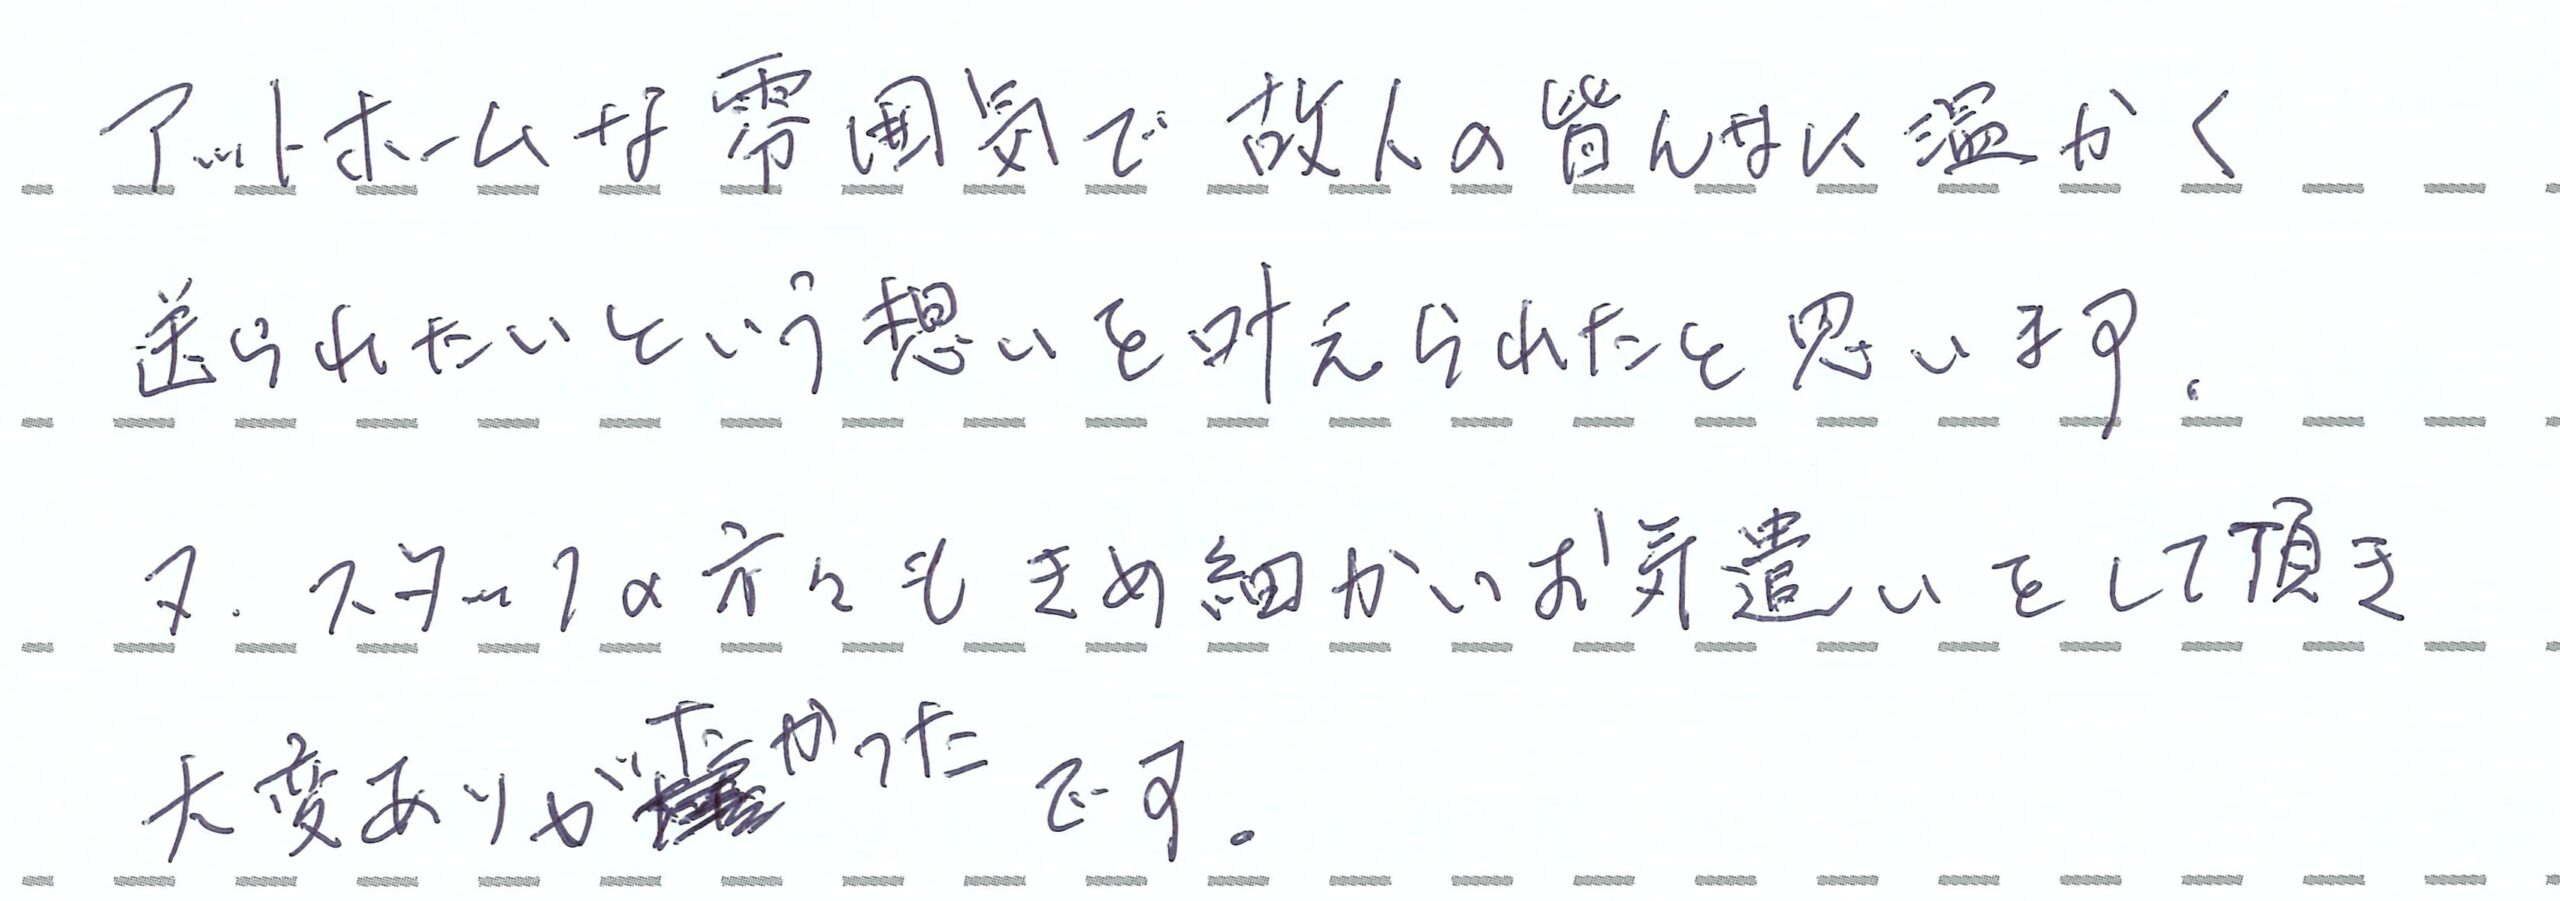 アットホームな雰囲気で故人の皆んなに温かく
送られたいという想いを叶えられたと思います。
又、スタッフの方々もきめ細かいお気遣いをして頂き
大変ありがたかったです。